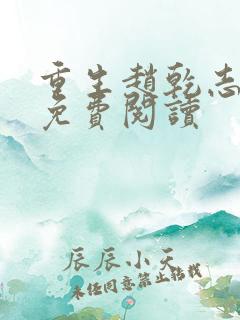 重生趙乾志
免費閱讀
辰辰小天
未经同意禁止转载